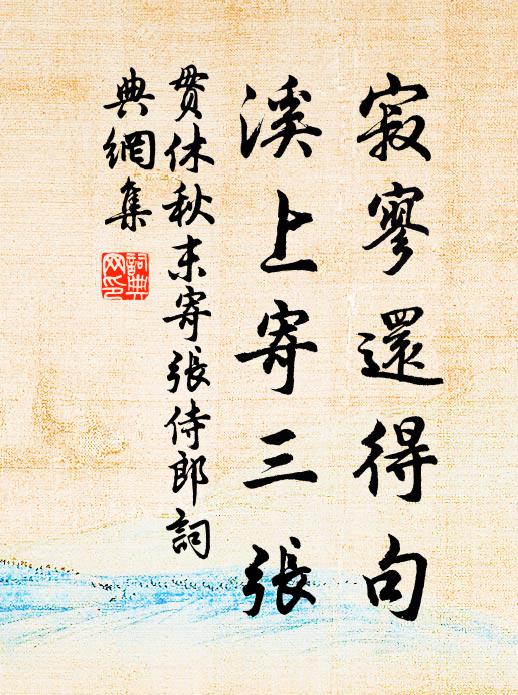 寂寥還得句
溪上寄三張
貫休秋末寄張侍郎詞
典網集
詞典
网印